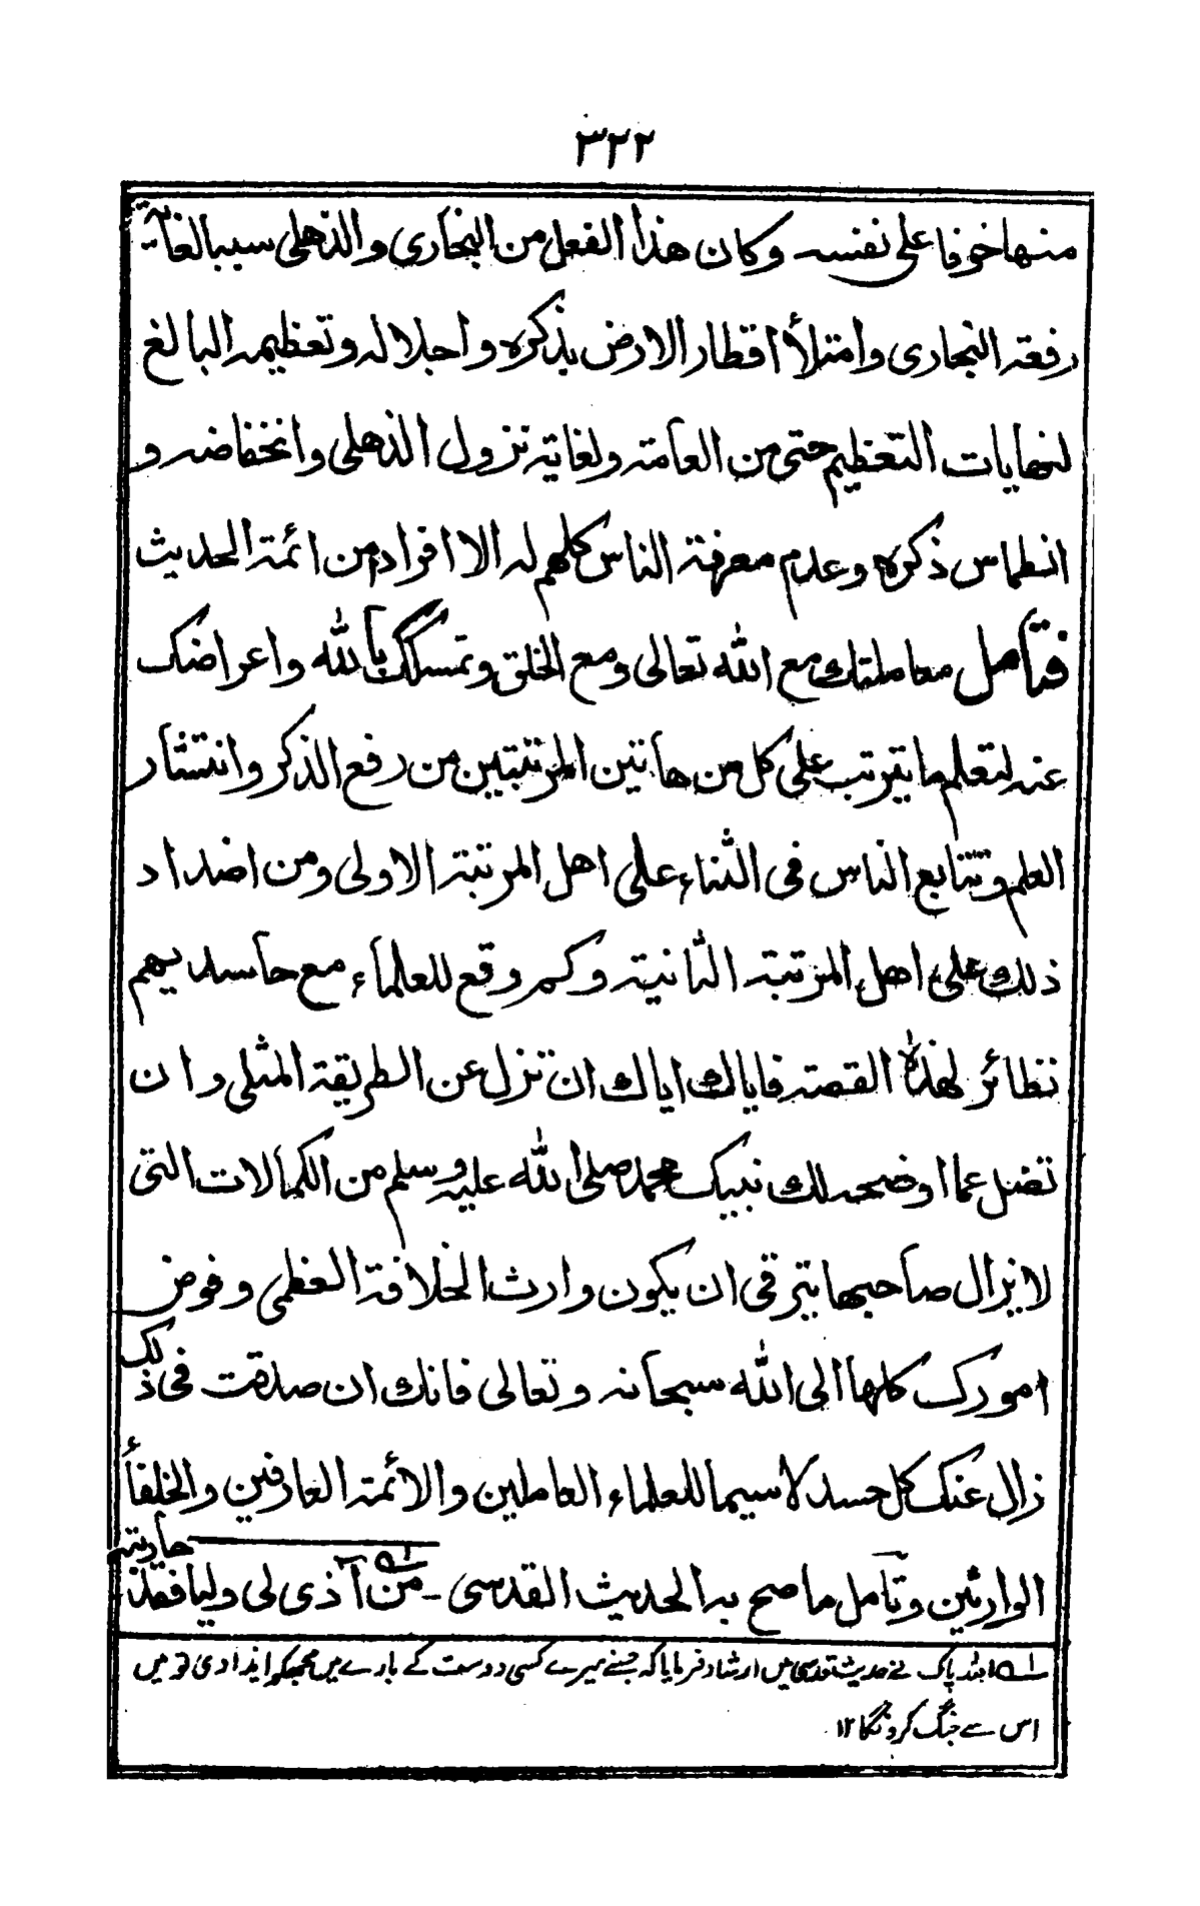 ۳۲۲
منها خوفا على نفسه وكان هذا الفعل من البخارى والذهلى سببا لغاية
رفعة البخارى وامتلأ اقطار الارض بذكره واجلاله وتعظيمه البالغ
لنهايات التعظيم حتى من العامة ولغاية نزول الذهلى وانخفاضه و
انطماس ذكره وعدم معرفة الناس كلهم له الا افراد من ائمة الحديث
فتأمل معاملتك مع الله تعالى ومع الخلق وتمسكك بالله واعراضك
عنه لتعلم ما يترتب على كل من هاتين المرتبتين من رفع الذكر وانتشار
العلم وتتابع الناس فى الثناء على اهل المرتبة الاولى ومن اضداد
ذلك على اهل المرتبة الثانية وكم وقع للعلماء مع حاسديهم
نظائر لهذه القصة فاياك اياك ان تنزل عن الطريقة المثلى وان
تضل عما اوضحه لك نبيك محمد صلى الله عليه وسلم من الكمالات التى
لا يزال صاحبها يترقى ان يكون وارث الخلافة العظمى وفوض
امورك كلها الى الله سبحانه وتعالى فانك ان صدقت فى ذلك
زال عنك كل حسد لا سيما للعلماء العاملين والائمة العارفين والخلفأ
الوارثين وتأمل ما صح به الحديث القدسى ـ من آذى لى وليا فقد حاربته
ـلـه اللہ پاک نے حدیث قدسی میں ارشاد فرمایا کہ جسنے میرے کسی دوست کے بارے میں مجھکو ایذا دی تو میں
اس سے جنگ کرونگا ۱۲